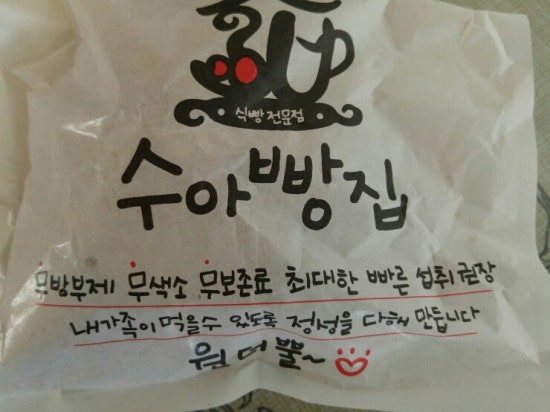 식빵전문점
수아빵집
무방부제 무색소 무보존료 최대한 빠른 섭취 권장
내가족이 먹을수 있도록 정성을 다해 만듭니다
원더뿔~